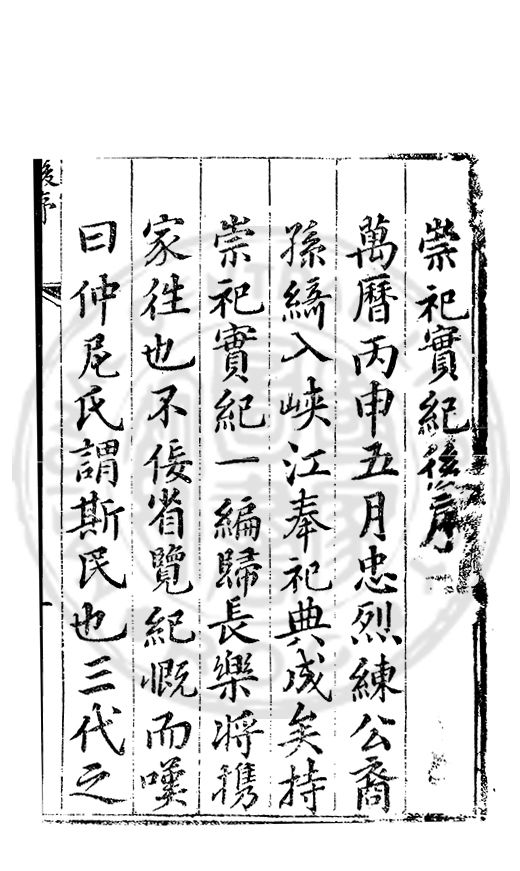 崇祀實紀後序
萬曆丙申五月忠烈練公裔
孫繘入峽江奉祀典成矣持
崇祀實紀一編歸長樂將携
家徃也不佞省覽紀慨而嘆
曰仲尼氏謂斯民也三代之
後序